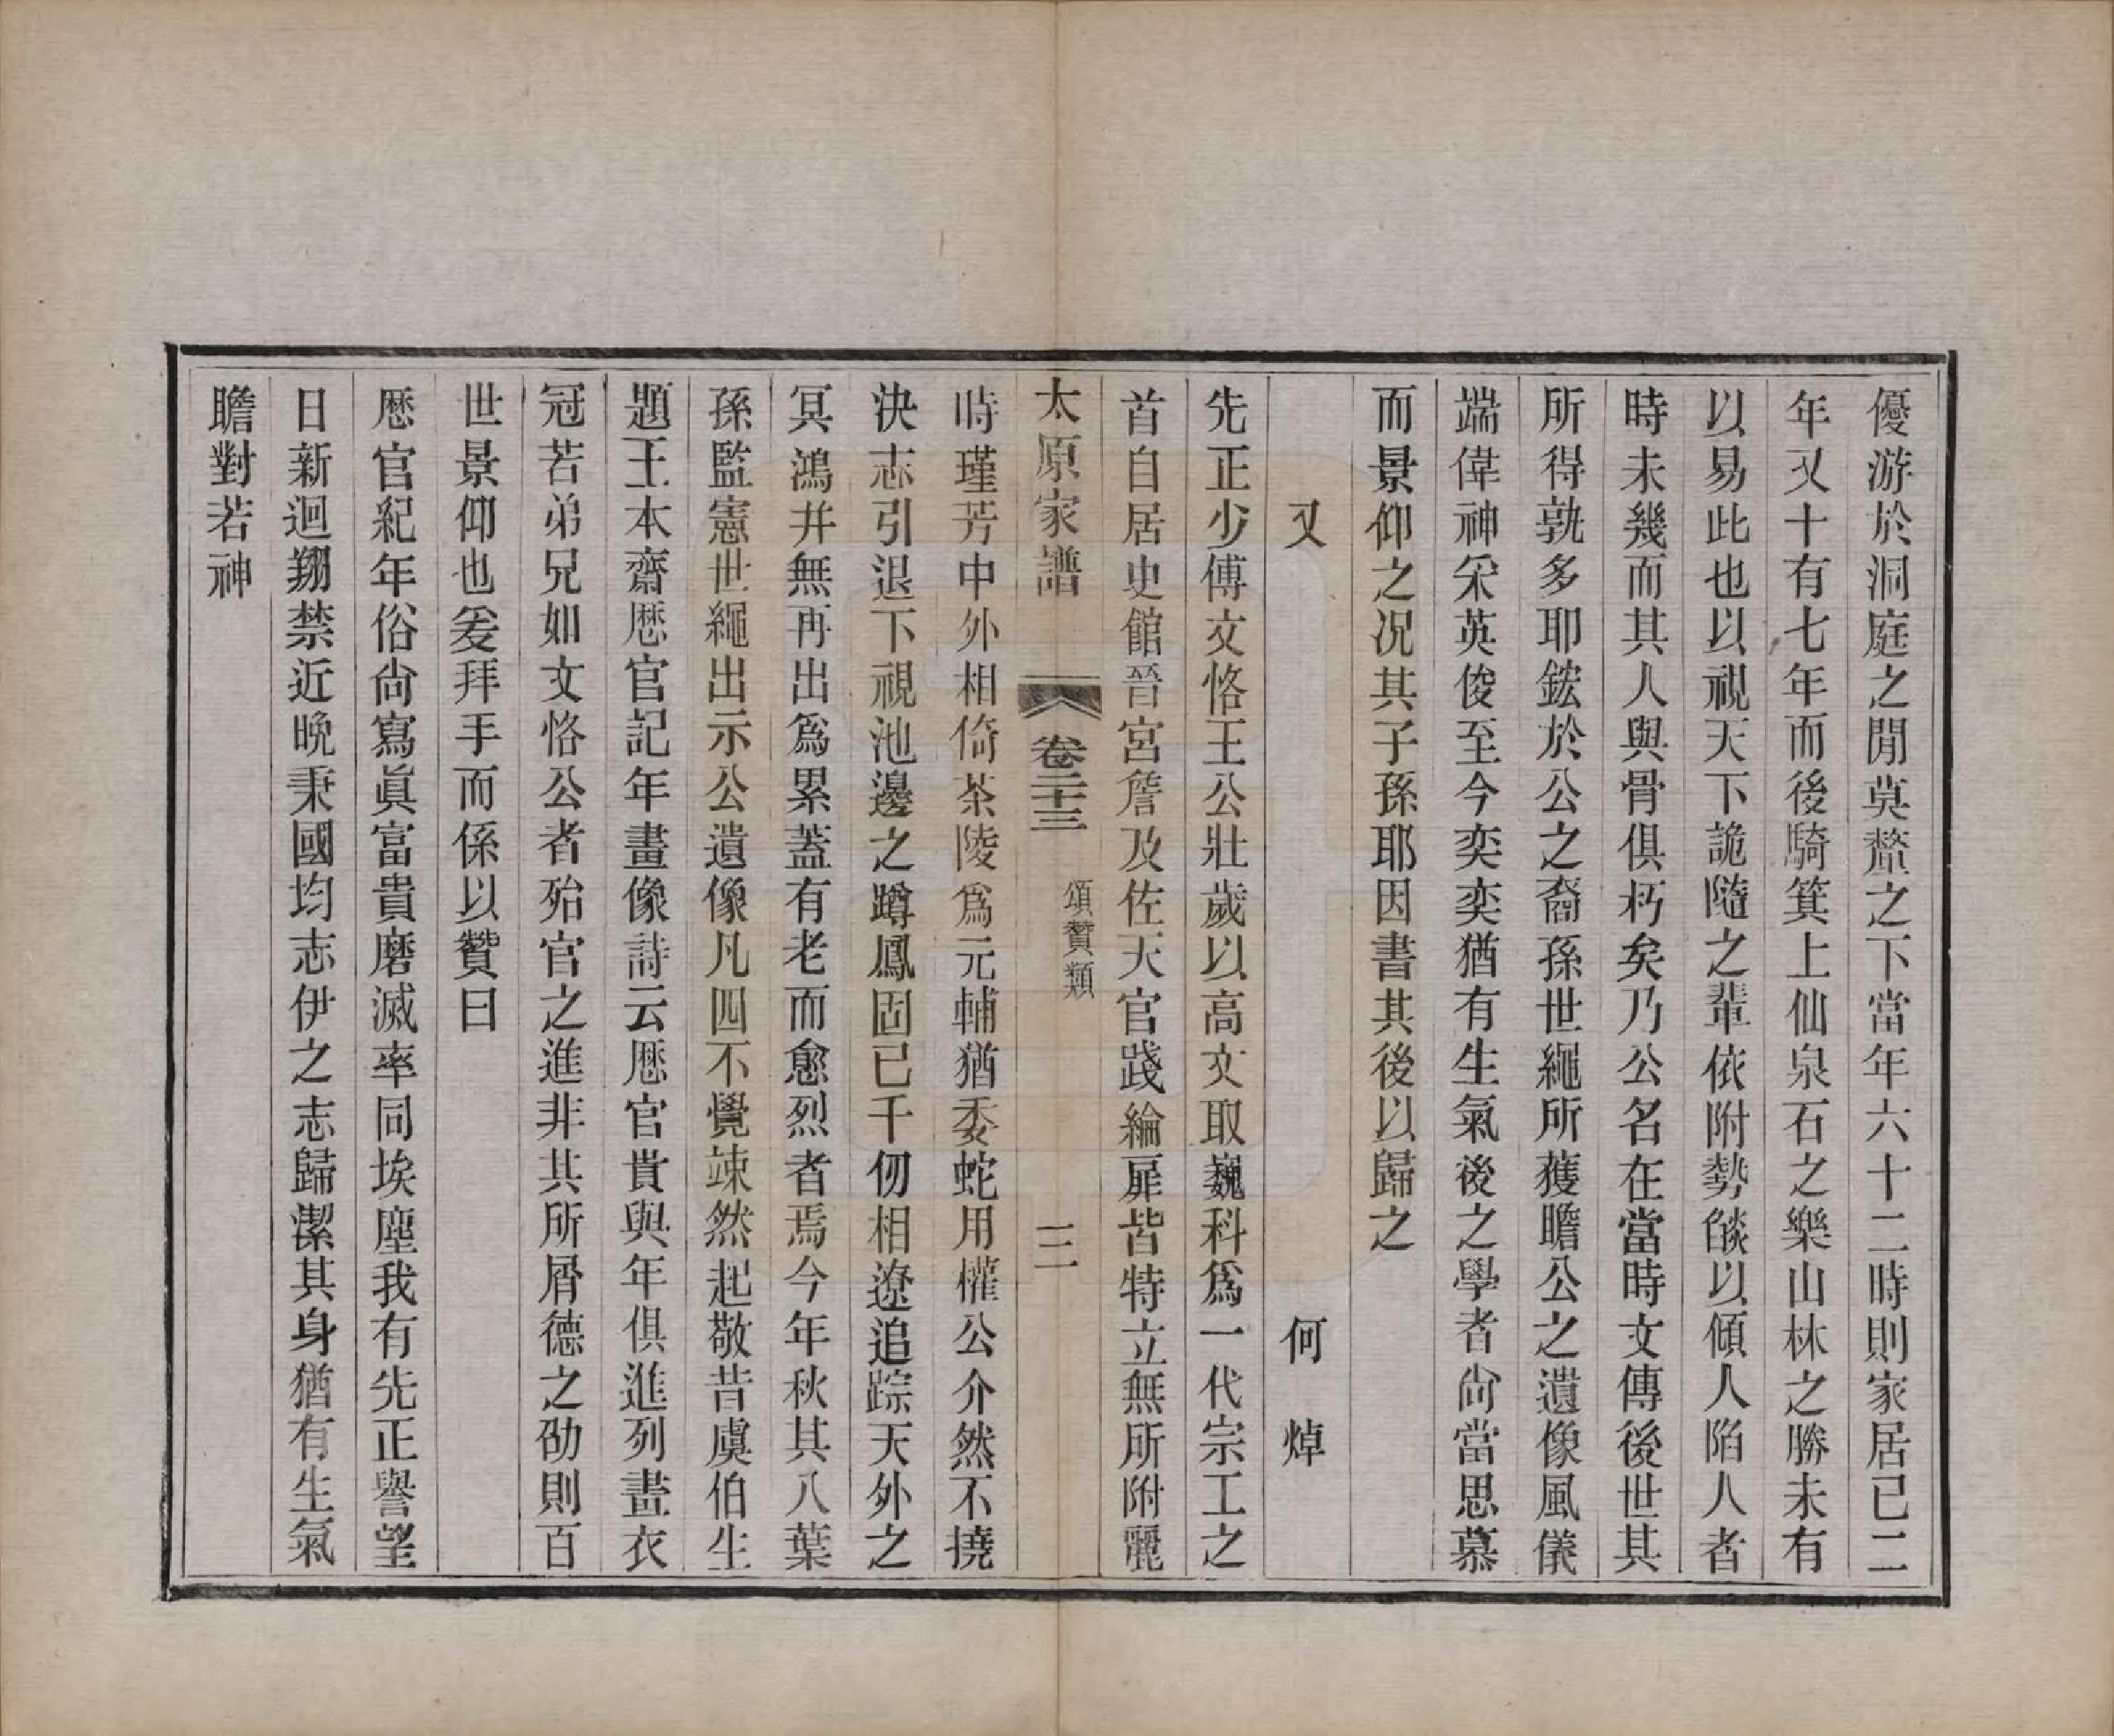 優游於洞庭之閒莫釐之下當年六十二時則家居已二
年又十有七年而後騎箕上仙泉石之樂山林之勝未有
以易此也以視天下詭隨之輩依附勢燄以傾人陷人者
時未幾而其人與骨俱朽矣乃公名在當時文傳後世其
所得孰多耶鋐於公之裔孫世繩所獲瞻公之遺像風儀
端偉神采英俊至今奕奕猶有生氣後之學者尙當思慕
而景仰之况其子孫耶因書其後以歸之
又　何焯
先正少傅文恪王公壯歲以高文取巍科爲一代宗工之
首自居史館晉宮詹及佐天官踐綸扉皆特立無所附麗
太原家譜　卷二十三　頌贊類　三
時瑾芳中外相倚茶陵爲元輔猶委蛇用權公介然不撓
決志引退下視池邊之蹲鳳固已千仞相遼追踪天外之
冥鴻并無再出爲累蓋有老而愈烈者焉今年秋其八葉
孫監憲世繩出示公遺像凡四不覺竦然起敬昔虞伯生
題王本齋歷官記年畫像詩云歷官貴與年俱進列畫衣
冠若弟兄如文恪公者殆官之進非其所屑德之劭則百
世景仰也爰拜手而係以贊曰
歷官紀年俗尙寫眞富貴磨滅率同埃塵我有先正譽望
日新迴翔禁近晚秉國均志伊之志歸潔其身猶有生氣
瞻對若神